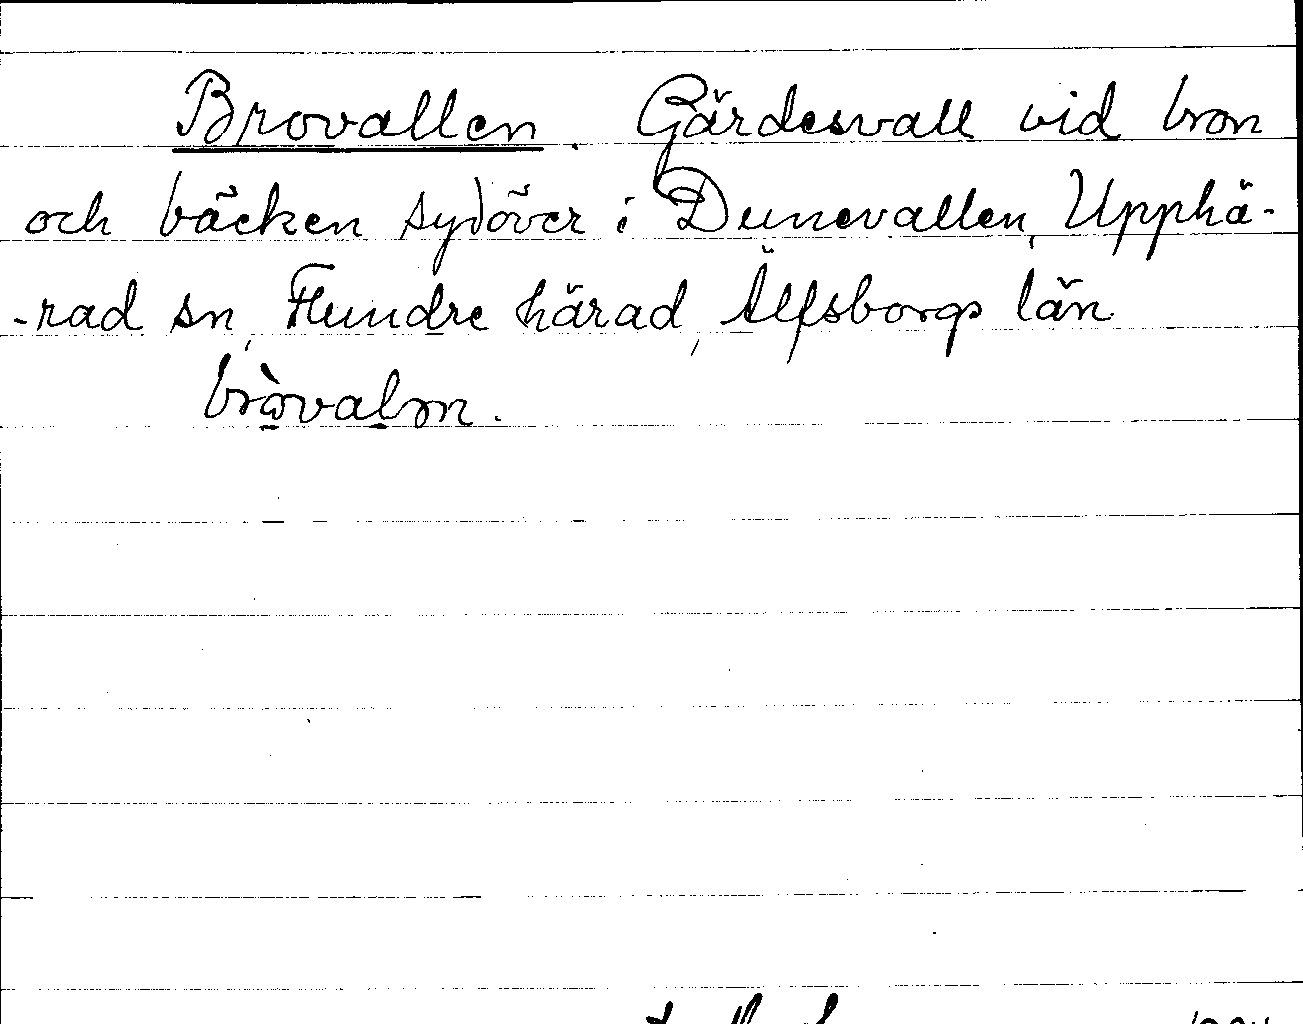 Brovallen. Gärdesvall vid bron
och bäcken sydöver i Dunevallen, Upphä-
-rad sn, Flundre härad, Älfsborgs län